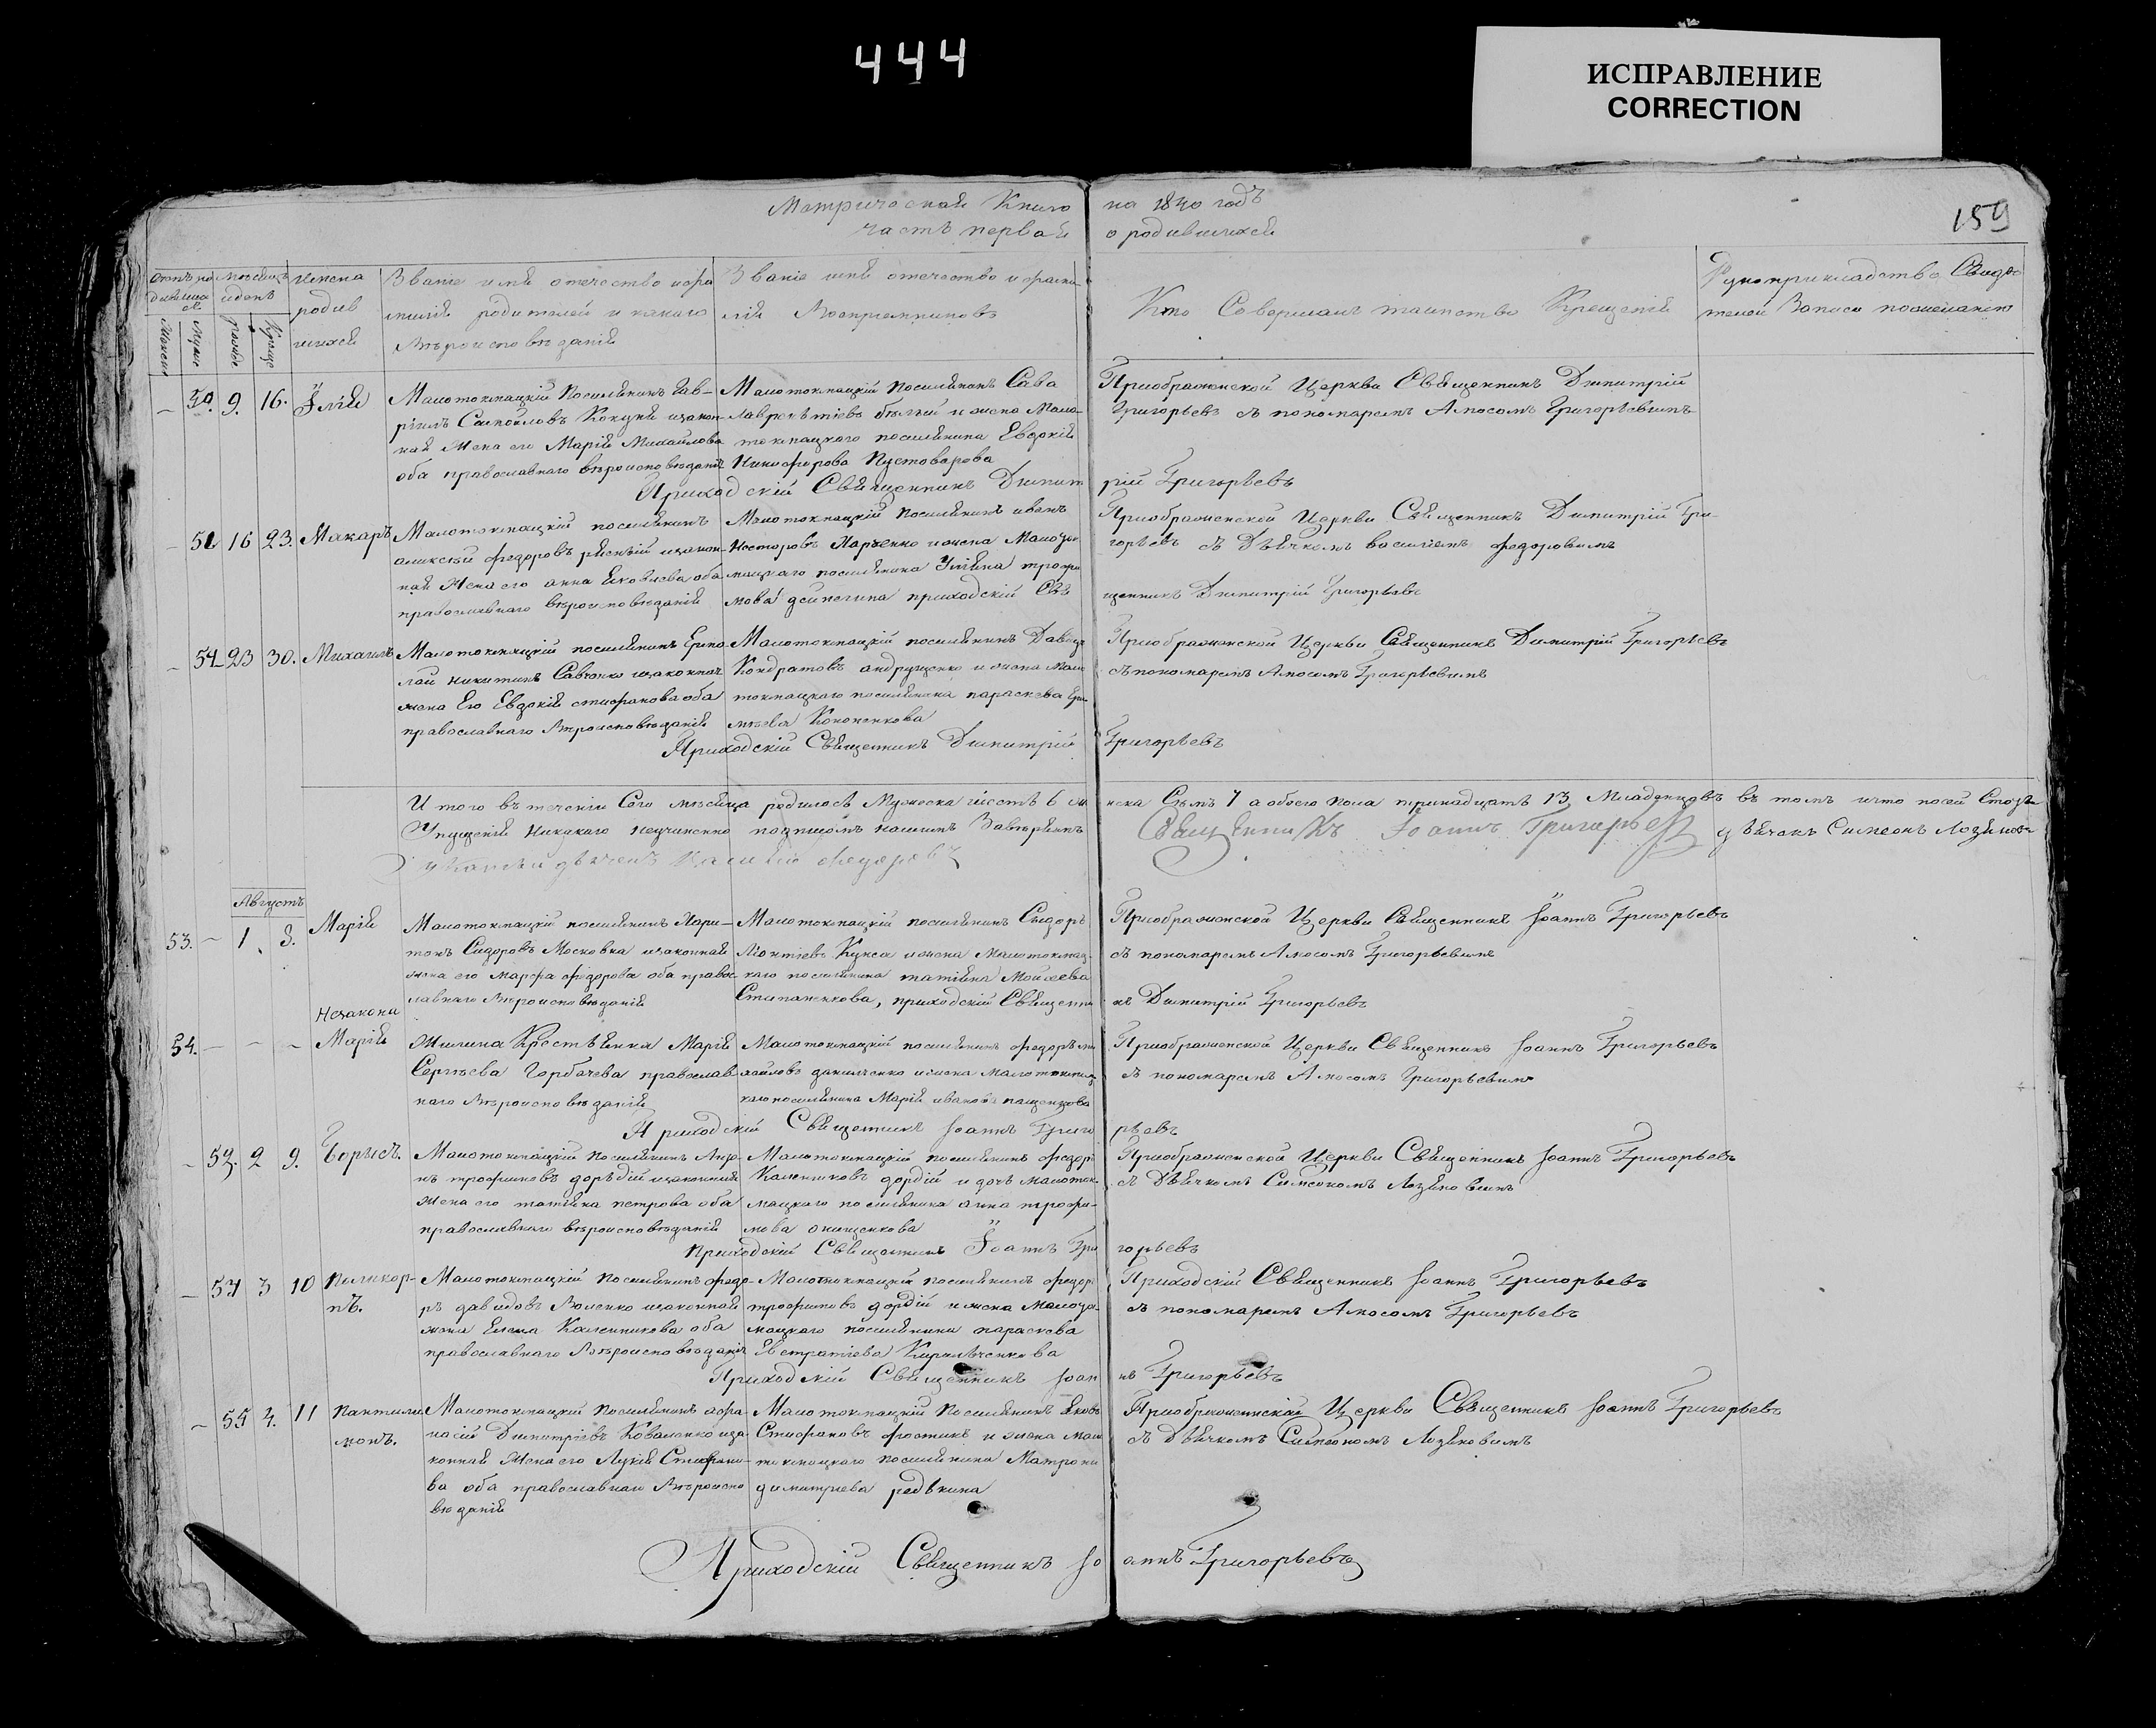 444
ИСПРАВЛЕНИЕ
CORRECTION
159
Метрическая Книга на 1840 годъ
часть первая о родившихся
Имена родившихся
Званіе имя отечество и фамилія родителей и какого вѣроисповѣданія
Званіе имя отечество и фамилія Воспріемниковъ
Кто Совершалъ таинство Крещенія
Рукоприкладство Свидетелей Записи по желанію
9. 16. Илія
Малотокмацкій Поселянинъ Гав-
рило Самойловъ Кокуня изакон-
ная Жена его Марія Михайлова
оба православнаго вѣроисповѣданія
Малотокмацкій Поселянинъ Сава
Лаврентіевъ бѣлый и жена Мало-
токмацкого поселянина Евдокія
Никифорова Пустоварова
Приображенской Церкви Священникъ Димитрій
Григорьевъ съ пономаремъ Амосомъ Григорьевимъ
Приходскій Священникъ Димитрій Григорьевъ
51 16 23. Макаръ
Малотокмацкій поселянинъ
алексѣй федоровъ изакон-
ная Жена его анна Яковлева оба
православнаго вѣроисповѣданія
Малотокмацкій Поселянинъ иванъ
Несторовъ Харченко и жена Малото-
мацкаго поселянина Уліяна трофи
мова приходскій Свя
Приображенской Церкви Священникъ Димитрій Гри-
горьевъ съ Дьячкомъ василіемъ федоровимъ
щенникъ Димитрій Григорьевъ
52 23 30. Михаилъ
Малотокмацкій поселянинъ Ермо
лай никитинъ Савченко изаконная
жена Его Евдокія стефанова оба
православнаго Вѣроисповѣданія
Малотокмацкій поселянинъ Давидъ
Кондратовъ андрущенко и жена Мало
токмацкаго поселянина параскева
Кононенкова
Приображенской Церкви Священникъ Димитрій Григорьевъ
съ пономаремъ Амосомъ Григорьевимъ
Приходскій Священникъ Димитрій Григорьевъ
Итого въ теченіи Сего мѣсяца родилось Мужеска шесть 6 женска Семь 7 а обоего пола тринадцать 13 Младенцовъ въ томъ что
Упущенія Никакаго неучинено подписомъ нашимъ Завѣряемъ Священникъ Іоаннъ Григорьевъ дьячокъ Симеонъ Лозяновъ
дьячекъ Василій федоровъ
Августъ
53. – 1. 8. Марія
Малотокмацкій поселянинъ Хари-
тонъ Сидоровъ Московка изаконная
жена его марфа федорова оба правос
лавнаго Вѣроисповѣданія
Малотокмацкій поселянинъ Сидоръ
Леонтіевъ Кукса и жена Малотокмац-
каго поселянина татіяна Мойсеева
Степаненкова, приходскій Священни
Приображенской Церкви Священникъ Іоаннъ Григорьевъ
съ пономаремъ Амосомъ Григорьевимъ
къ Димитрій Григорьевъ
54. – – – Незакона Марія
Крестьянка Марія
Сергѣева Горбачева православ
наго Вѣроисповѣданія
Малотокмацкій поселянинъ федоръ ми
хайловъ данильченко и жена Малотокмац
каго поселянина Марія иванова пащенкова
Приображенской Церкви Священникъ Іоаннъ Григорьевъ
съ пономаремъ Амосомъ Григорьевимъ
Приходскій Священникъ Іоаннъ Григорьевъ
– 53. 2 9. Борысъ.
Малотокмацкій Поселянинъ
трофимовъ изаконная
Жена его татіяна петрова оба
православнаго вѣроисповѣданія
Малотокмацкій поселянинъ федоръ
Калениковъ гордій и дочь малоток-
мацкаго поселянина анна трофи-
мова онищенкова
Приображенской Церкви Священникъ Іоаннъ Григорьевъ
съ Дьячкомъ Симеономъ Лозяновимъ
приходскій Священникъ Іоаннъ Григорьевъ
– 54 3 10 Поликар-
пъ.
Малотокмацкій Поселянинъ федо-
ръ давидовъ изаконная
жена Елена Каленникова оба
православнаго Вѣроисповѣданія
Малотокмацкій поселянинъ федоръ
трофимовъ гордій и жена малото-
мацкаго поселянина параскева
Евстратіева Кириличенкова
Приходскій Священникъ Іоаннъ Григорьевъ
съ пономаремъ Амосомъ Григорьевъ
Приходскій Священникъ Іоаннъ Григорьевъ
– 55 4. 11 Пантили
монъ.
Малотокмацкій Поселянинъ афа-
насій Димитріевъ Коваленко иза
конная Жена его Лукія Стефано-
ва оба православнаго Вѣроиспо
вѣданія
Малотокмацкій Поселянинъ Яковъ
Стефановъ фостикъ и жена мало
токмацкаго поселянина Матрона
димитріева редькина
Приображенской Церкви Священникъ Іоаннъ Григорьевъ
съ Дьячкомъ Симеономъ Лозяновимъ
Приходскій Священникъ Іоаннъ Григорьевъ